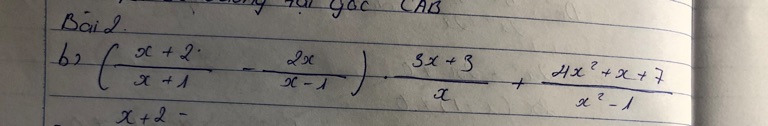 góc CAB
Bài 2.
b) ( \frac{x + 2}{x + 1} - \frac{2x}{x - 1} ) . \frac{3x + 3}{x} + \frac{4x² + x + 7}{x² - 1}
x + 2 -